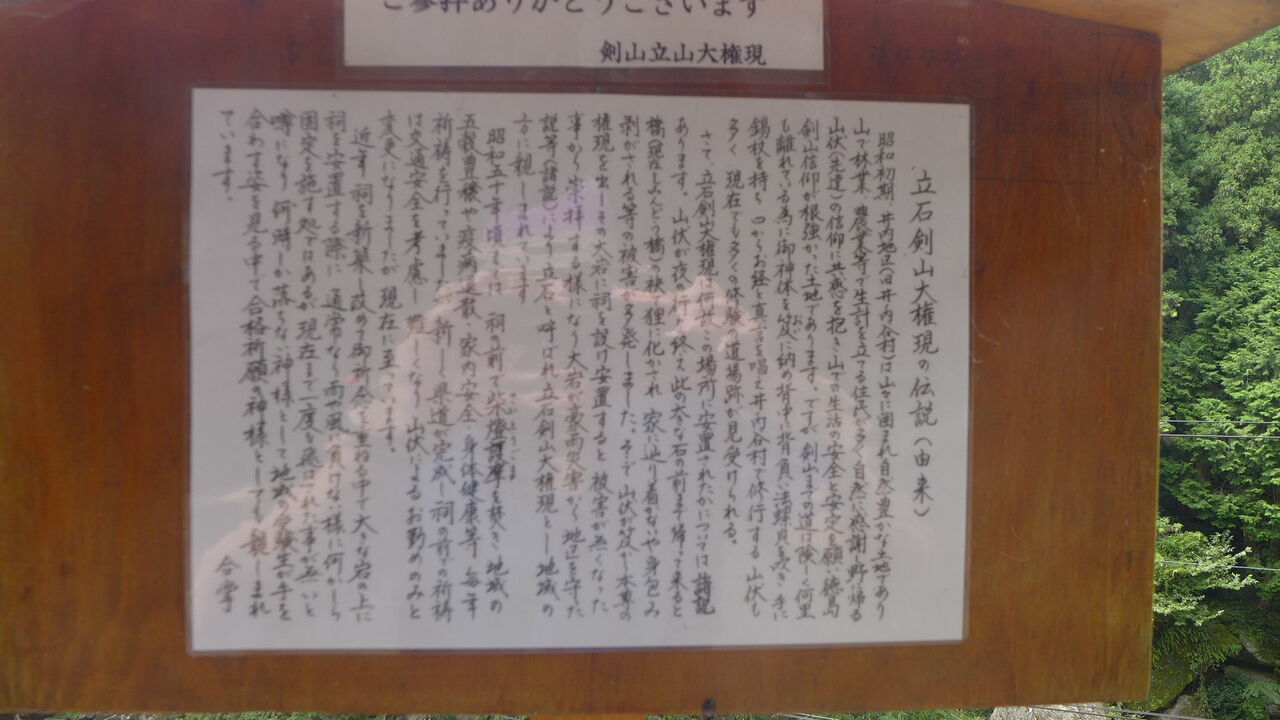 ご参拝ありがとうございます
剣山立山大権現
立石剣山大権現の伝説（由来）
昭和初期、井内地区（旧井内谷村）は山々に囲まれ自然豊かな土地であり
山で林業、農業等で生計を立てる住民が多く自然に感謝し野に帰る
山伏（先達）の信仰に共感を抱き山での生活の安全と安定を願い徳島
剣山信仰が根強かった土地であります。ですが、剣山までの道は険しく何里
も離れている為に御神体を笈に納め背中に背負い法螺貝を吹き、手に
おい
錫杖を持ち 心からお経と真言を唱え井内谷村で修行する山伏も
多く、現在でも多くの体験、道場跡が見受けられる。
さて、立石剣山大権現は何故この場所に安置されたかについては諸説
あります。山伏が夜の行を終え此の大きな石の前まで帰って来ると
橋（現在しんどう橋）の袂で狸に化かされ、家に辿り着かなや身包み
剥がされる等の被害が多発しました。そこで山伏が笈から本尊の
権現を出しその大岩に祠を設け安置すると、被害が無くなった
事から崇拝する様になり大岩が豪雨災害から地区を守った
説等（諸説）により立石と呼ばれ立石剣山大権現とし地域の
方に親しまれています
昭和五十年頃までは、祠の前で柴燈護摩を焚き、地域の
さいとうごま
五穀豊穣や疫病退散・家内安全・身体健康等、毎年
祈祷を行っていましたが、新しい県道が完成し祠の前での祈祷
は交通安全を考慮し難しくなり山伏によるお勤めのみと
変更になりましたが現在に至ってます。
近年、祠を新築し改めて御祈念を重ねる中で大きな岩の上に
祠を安置する際に、通常なら雨、風に負けない様に何かしら
固定を施す処ではあるが、現在まで一度も飛ばされた事が無いと
噂になり、何時しか落ちない神様として地域の受験生が手を
合わす姿を見る中で合格祈願の神様としても親しまれ
ています。
合掌